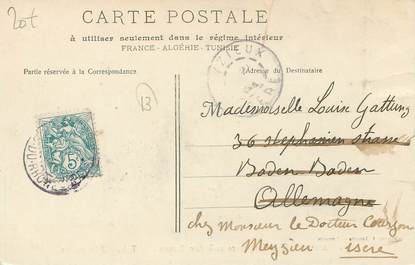 20t
CARTE POSTALE
à utiliser seulement dans le régime intérieur
FRANCE - ALGÉRIE - TUNISIE
Partie réservée à la Correspondance
Adresse du Destinataire
13
5
Mademoiselle Louise Gattung
36 stephanien strasse
Baden-Baden
Allemagne
chez Monsieur le Docteur Courjon
Meyzieu isere